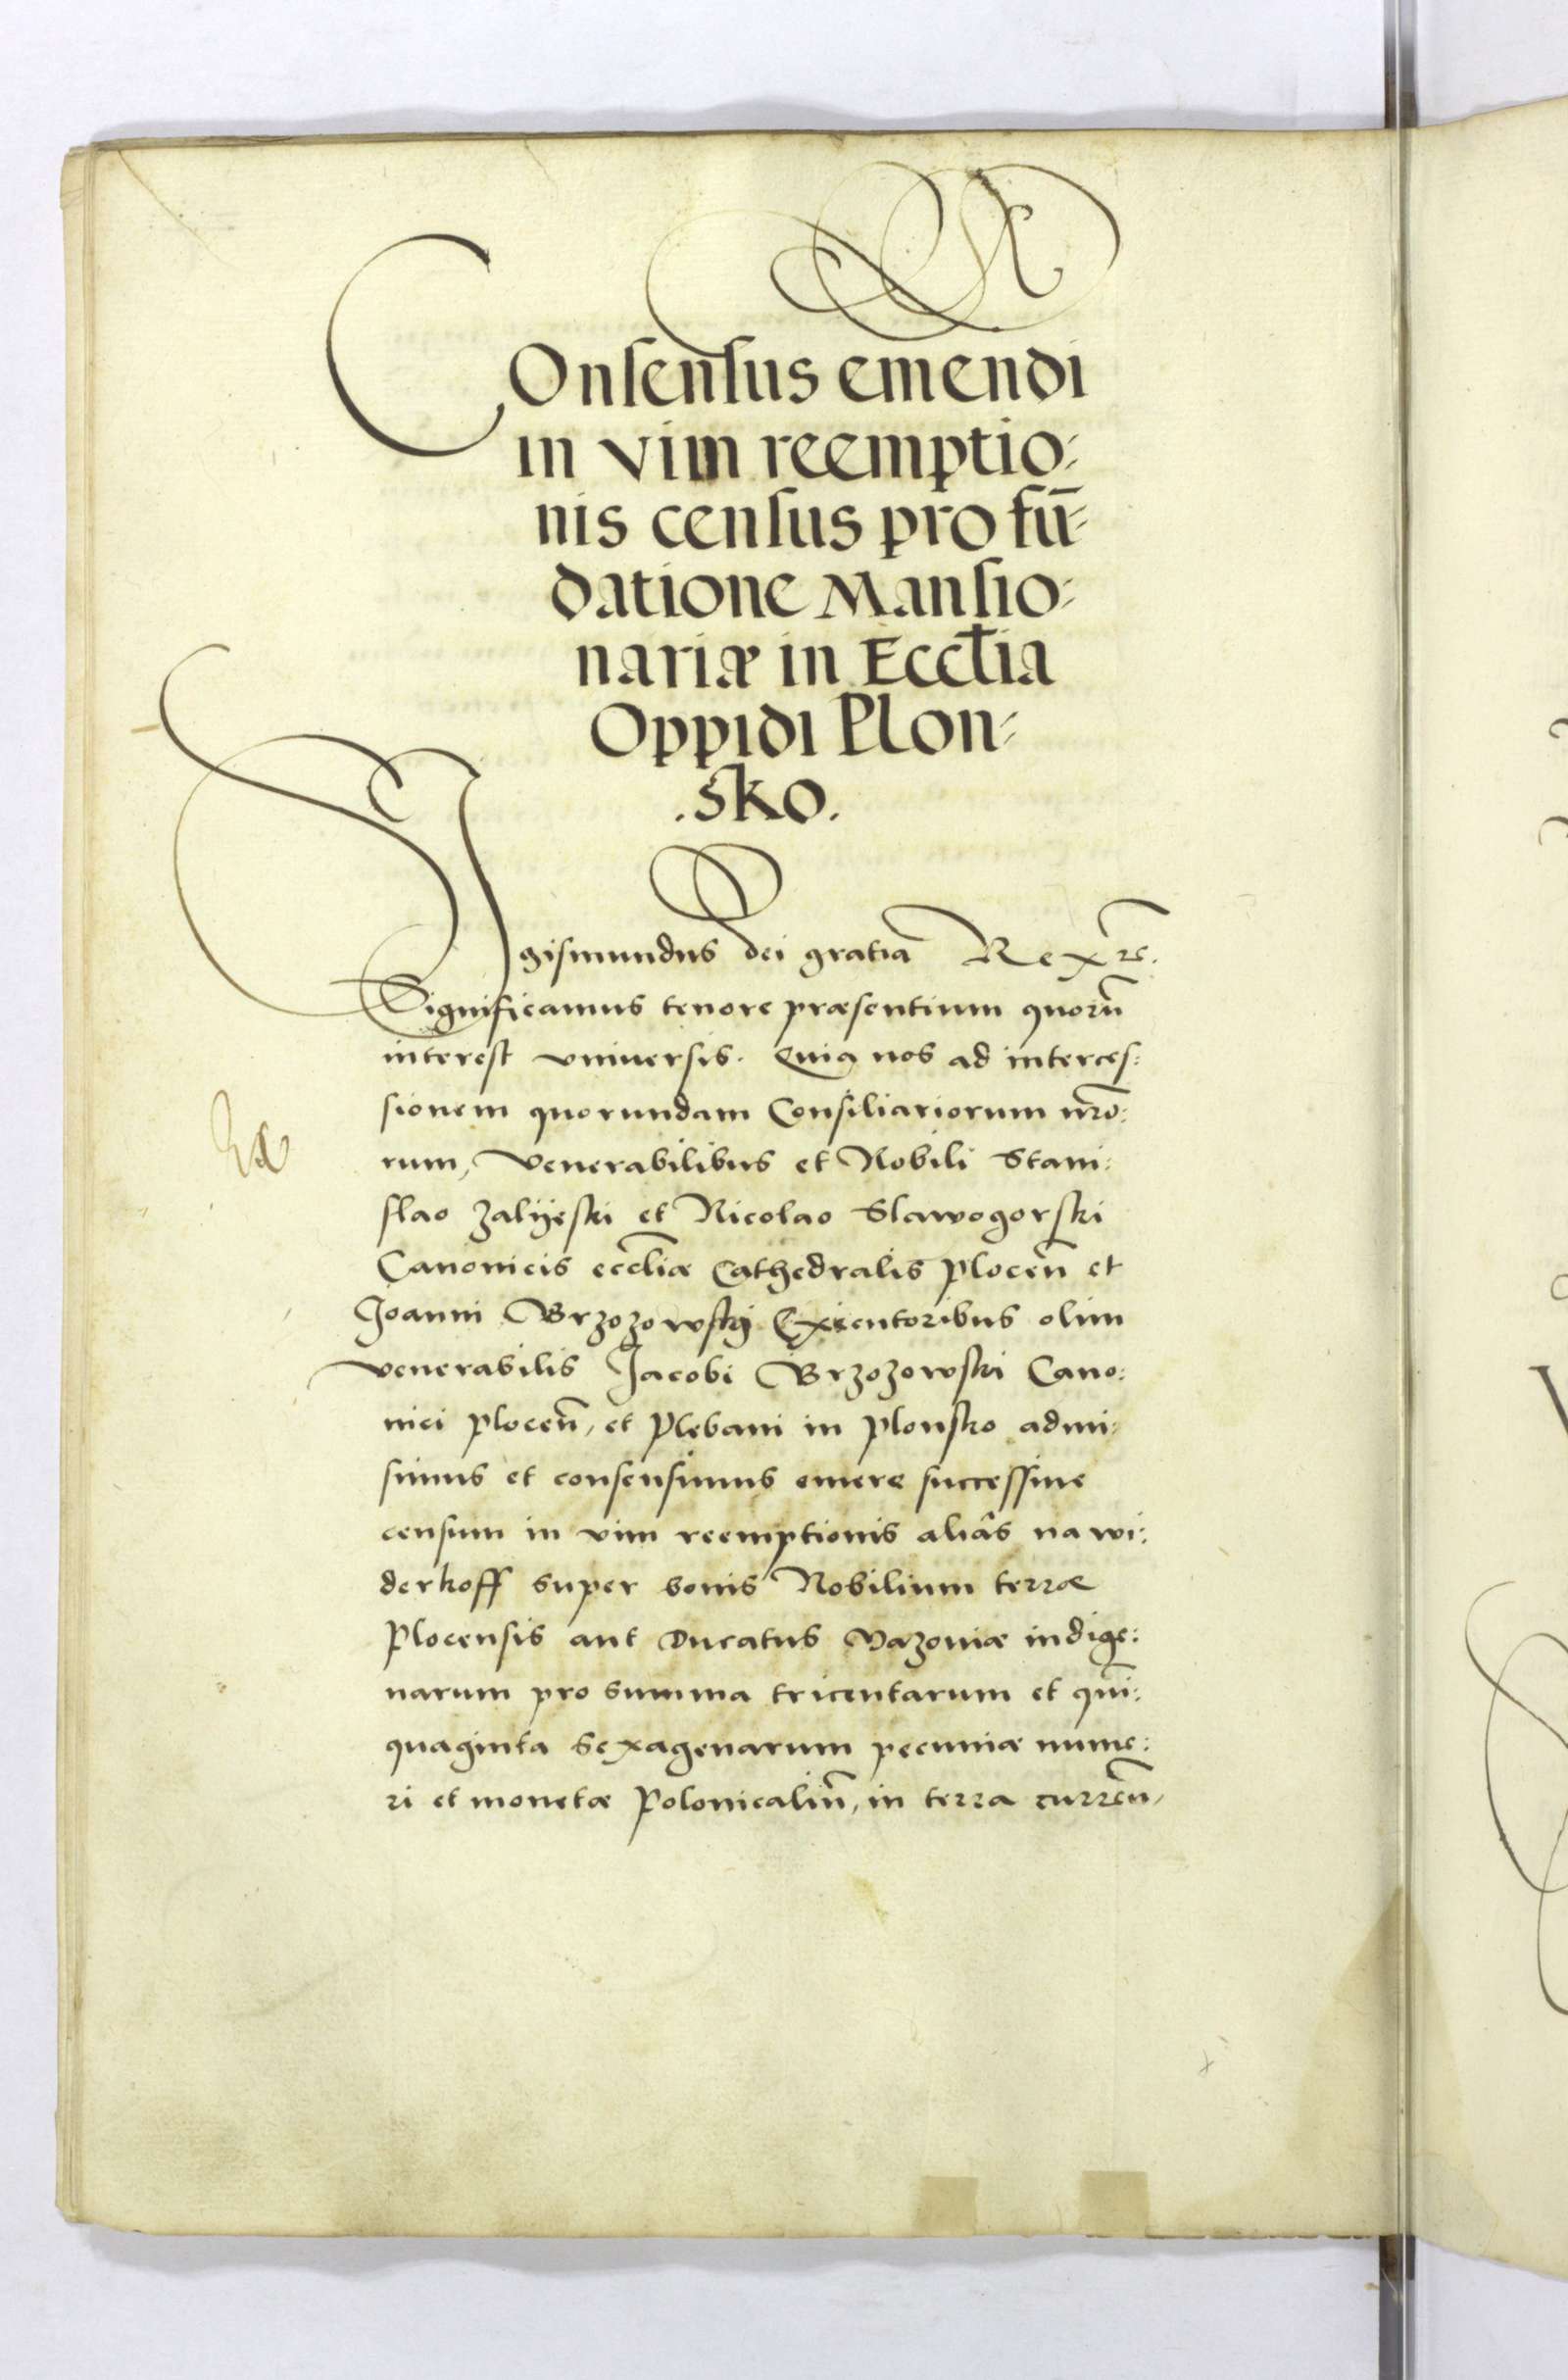 Consensus emendi
in vim reemptio:
nis census pro fū:
datione Mansio:
nariæ in Eccłia
Oppidi Plon:
.sko.
Sigismundus dei gratia Rex rc.
Significamus tenore præsentium quorū
interest vniuersis. Quia nos ad interces:
sionem quorundam Consiliariorum nr̄o:
rum, Venerabilibus et Nobili Stani:
slao Zalijeski et Nicolao Slawogorski
Canonicis eccl̄iæ Cathedralis Plocen̄ et
Joanni Brzozowskij Exequutoribus olim
venerabilis Jacobi Brzozowski Cano:
nici plocen̄, et Plebani in Plonsko admi:
simus et consensimus emere successiue
censum in vim reemptionis aliâs na wi:
derkoff super bonis Nobilium terræ
Plocensis aut Ducatus Mazoniæ indige:
narum pro summa tricentarum et qui̅:
quaginta sexagenarum pecuniæ nume:
ri et monetæ Polonicaliū, in terra curren̄,